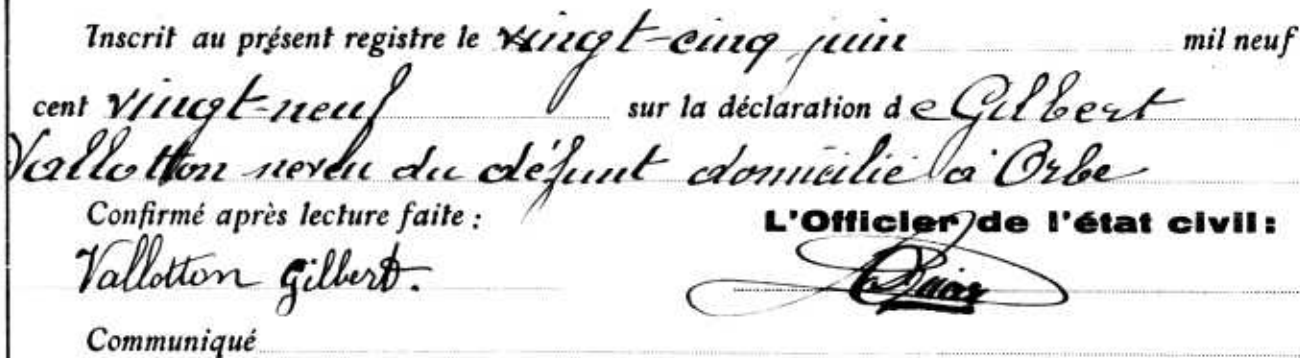 Inscrit au présent registre le vingt-cinq juin mil neuf
cent vingt-neuf sur la déclaration de Gilbert
Vallotton neveu du défunt domicilié à Orbe
Confirmé après lecture faite :
L'Officier de l'état civil :
Vallotton Gilbert.
Communiqué